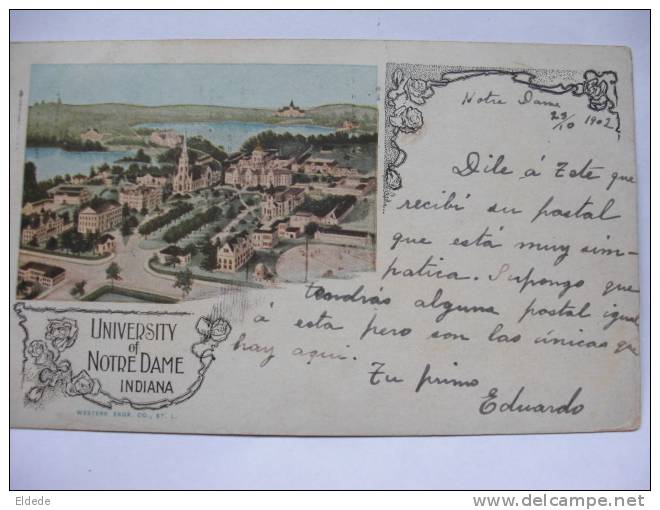 Notre Dame
29/10 1902
Dile á Tete que
recibí su postal
que está muy sim-
patica. Supongo que
tendrás alguna postal igual
á esta pero son las únicas que
hay aqui.
Tu primo
Eduardo
UNIVERSITY
of
NOTRE DAME
INDIANA
WESTERN ENGR. CO., ST. L.
Eldede
http://www.delcampe.net